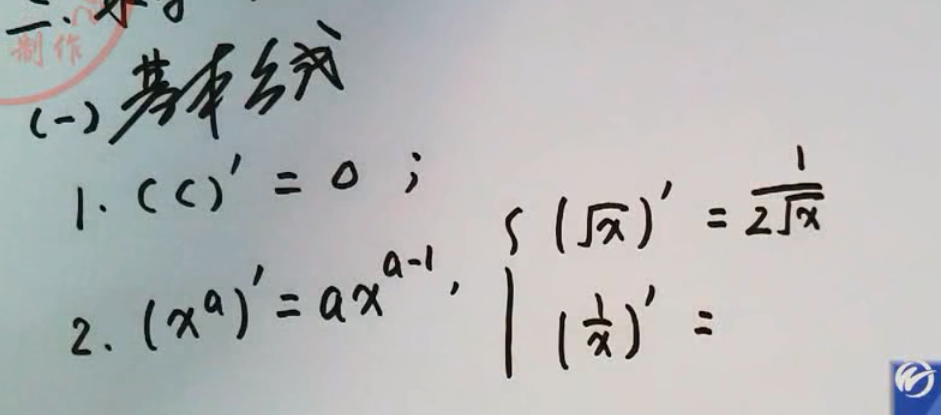 制作
(一) 基本公式
1. (C)' = 0 ;
2. (x^a)' = ax^{a-1}, { (√x)' = 1/(2√x)
(1/x)' =